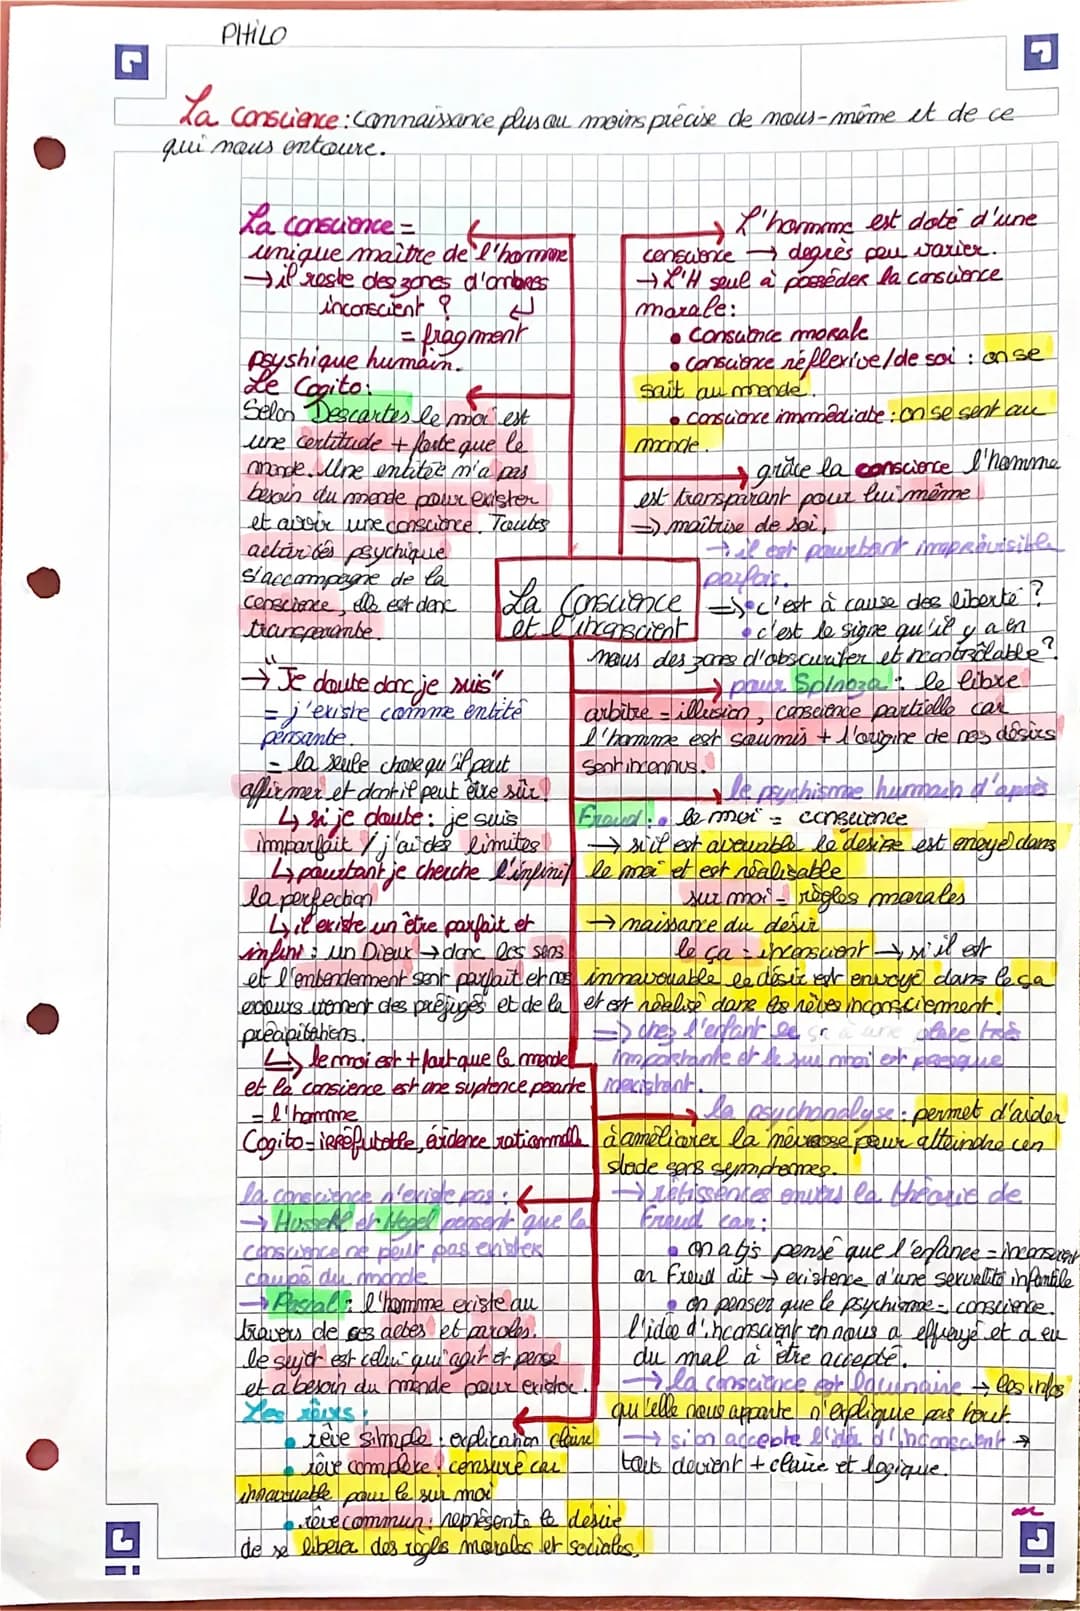 PHILO
La conscience : connaissance plus ou moins précise de nous-même et de ce
qui nous entoure.
La conscience =
unique maître de l'homme
→ il reste des zones d'ombres
inconscient ?
= fragment
psyshique humain.
Le Cogito :
Selon Descartes le moi est
une certitude + forte que le
monde. Une entitée n'a pas
besoin du monde pour exister
et avoir une conscience. Toutes
activités psychique
s'accompagne de la
conscience, elle est donc
transparante.
→ "Je doute donc je suis"
= j'existe comme entité
pensante.
= la seule chose qu'il peut
affirmer et dont il peut être sûr.
↳ si je doute : je suis
imparfait / j'ai des limites
↳ pourtant je cherche l'infini/
la perfection
↳ il existe un être parfait et
infini : un Dieux → donc les sens
et l'entendement sont parfait et nos
erreurs vienent des préjugés et de la
précipitations.
↳ le moi est + fort que le monde
et la consience est une
= l'homme
Cogito = irréfutable, évidence rationnelle
la conscience n'existe pas :
→ Husserl et Hegel pensent que la
conscience ne peut pas exister
coupé du monde
→ Pascal : l'homme existe au
travers de ses actes et paroles.
le sujet est celui qui agit et pense
et a besoin du monde pour exister.
Les rêves :
• rêve simple : explication claire
• rêve complexe : censuré car
innavouable pour le sur moi
• rêve commun : représente le désire
de se libérer des règles morales et sociales.
L'homme est doté d'une
conscience → degrès peu varier.
→ L'H seul à posséder la conscience
morale :
• conscience morale
• conscience réflexive/de soi : on se
sait au monde.
• conscience immédiate : on se sent au
monde.
grâce la conscience l'homme
est transparant pour lui même
⇒ maîtrise de soi,
→ il est pourtant imprévisible
parfois.
⇒ • c'est à cause des liberté ?
• c'est le signe qu'il y a en
nous des zones d'obscuriter et incontrôlable ?
La Conscience
et l'inconscient
pour Spinoza : le libre
arbitre = illusion, conscience partielle car
l'homme est soumis + l'origine de nos désirs
sont inconnus.
le psychisme humain d'après
Freud : • le moi = conscience
→ si il est avouable le desire est envoyé dans
le moi et est réalisable
sur moi = règles morales
→ naissance du désir
le ça = inconscient → si il est
innavouable le désir est envoyé dans le ça
et est réalisé dans les rêves inconsciement.
⇒ chez l'enfant le ça a une place très
importante et le sur moi est presque
inexistant.
la psychanalyse : permet d'aider
à améliorer la névrose pour atteindre un
stade sans symptomes.
→ rétissences envers la théorie de
Freud car :
• on a tjs pensé que l'enfance = inconscient
or Freud dit → existence d'une sexualité infantile
• on penser que le psychisme = conscience.
l'idée d'inconscient en nous a effrayé et a eu
du mal à être accepté.
→ la conscience est lacunaire → les infos
qu'elle nous apporte n'explique pas tout.
→ si on accepte l'idée d'inconscient →
tout devient + claire et logique.